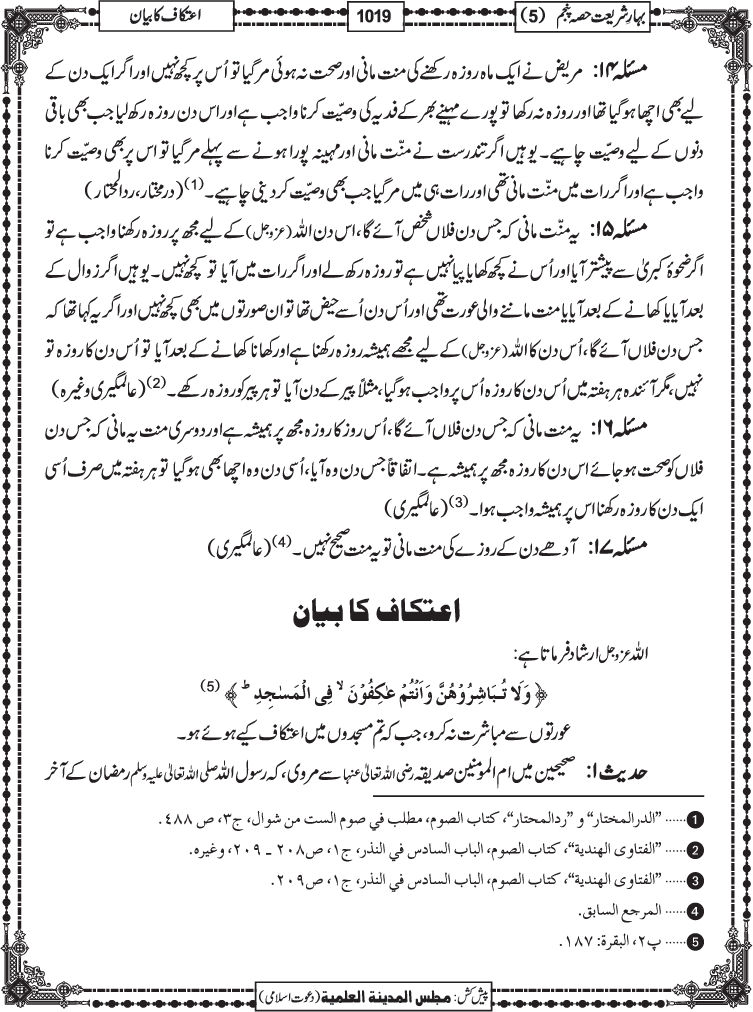 بہارِ شریعت حصہ پنجم (5)
1019
اعتکاف کا بیان
مسئلہ ۱۴: مریض نے ایک ماہ روزہ رکھنے کی منت مانی اور صحت نہ ہوئی مر گیا تو اُس پر کچھ نہیں اور اگر ایک دن کے
لیے بھی اچھا ہو گیا تھا اور روزہ نہ رکھا تو پورے مہینے بھر کے فدیہ کی وصیّت کرنا واجب ہے اور اس دن روزہ رکھ لیا جب بھی باقی
دنوں کے لیے وصیّت چاہیے۔ یوہیں اگر تندرست نے منّت مانی اور مہینہ پورا ہونے سے پہلے مر گیا تو اس پر بھی وصیت کرنا
واجب ہے اور اگر رات میں منّت مانی تھی اور رات ہی میں مر گیا جب بھی وصیّت کر دینی چاہیے۔(1) (درمختار، ردالمحتار)
مسئلہ ۱۵: یہ منّت مانی کہ جس دن فلاں شخص آئے گا، اس دن اللہ (عزوجل) کے لیے مجھ پر روزہ رکھنا واجب ہے تو
اگر ضحوۂ کبریٰ سے پیشتر آیا اور اُس نے کچھ کھایا پیا نہیں ہے تو روزہ رکھ لے اور اگر رات میں آیا تو کچھ نہیں۔ یوہیں اگر زوال کے
بعد آیا یا کھانے کے بعد آیا یا منت ماننے والی عورت تھی اور اُس دن اُسے حیض تھا تو ان صورتوں میں بھی کچھ نہیں اور اگر یہ کہا تھا کہ
جس دن فلاں آئے گا، اُس دن کا اللہ (عزوجل) کے لیے مجھے ہمیشہ روزہ رکھنا ہے اور کھانا کھانے کے بعد آیا تو اُس دن کا روزہ تو
نہیں، مگر آئندہ ہر ہفتہ میں اُس دن کا روزہ اُس پر واجب ہو گیا، مثلاً پیر کے دن آیا تو ہر پیر کو روزہ رکھے۔(2) (عالمگیری وغیرہ)
مسئلہ ۱۶: یہ منت مانی کہ جس دن فلاں آئے گا، اُس روز کا روزہ مجھ پر ہمیشہ ہے اور دوسری منت یہ مانی کہ جس دن
فلاں کو صحت ہو جائے اس دن کا روزہ مجھ پر ہمیشہ ہے۔ اتفاقاً جس دن وہ آیا، اُسی دن وہ اچھا بھی ہو گیا تو ہر ہفتہ میں صرف اُسی
ایک دن کا روزہ رکھنا اس پر ہمیشہ واجب ہوا۔(3) (عالمگیری)
مسئلہ ۱۷: آدھے دن کے روزے کی منت مانی تو یہ منت صحیح نہیں۔(4) (عالمگیری)
اعتکاف کا بیان
اللہ عزوجل ارشاد فرماتا ہے:
﴿ وَلَا تُبَاشِرُوْهُنَّ وَاَنْتُمْ عٰكِفُوْنَ ۙ فِی الْمَسٰجِدِ ؕ ﴾ (5)
عورتوں سے مباشرت نہ کرو، جب کہ تم مسجدوں میں اعتکاف کیے ہوئے ہو۔
حدیث ۱: صحیحین میں ام المومنین صدیقہ رضی اللہ تعالیٰ عنہا سے مروی، کہ رسول اللہ صلی اللہ تعالیٰ علیہ وسلم رمضان کے آخر
1 ...... "الدرالمختار" و "ردالمحتار"، كتاب الصوم، مطلب في صوم الست من شوال، ج۳، ص ٤٨٨.
2 ...... "الفتاوى الهندية"، كتاب الصوم، الباب السادس في النذر، ج۱، ص۲۰۸ ـ ۲۰۹، وغيره.
3 ...... "الفتاوى الهندية"، كتاب الصوم، الباب السادس في النذر، ج۱، ص۲۰۹.
4 ...... المرجع السابق.
5 ...... پ۲، البقرة: ۱۸۷.
پیش کش: مجلس المدينة العلمية (دعوت اسلامی)